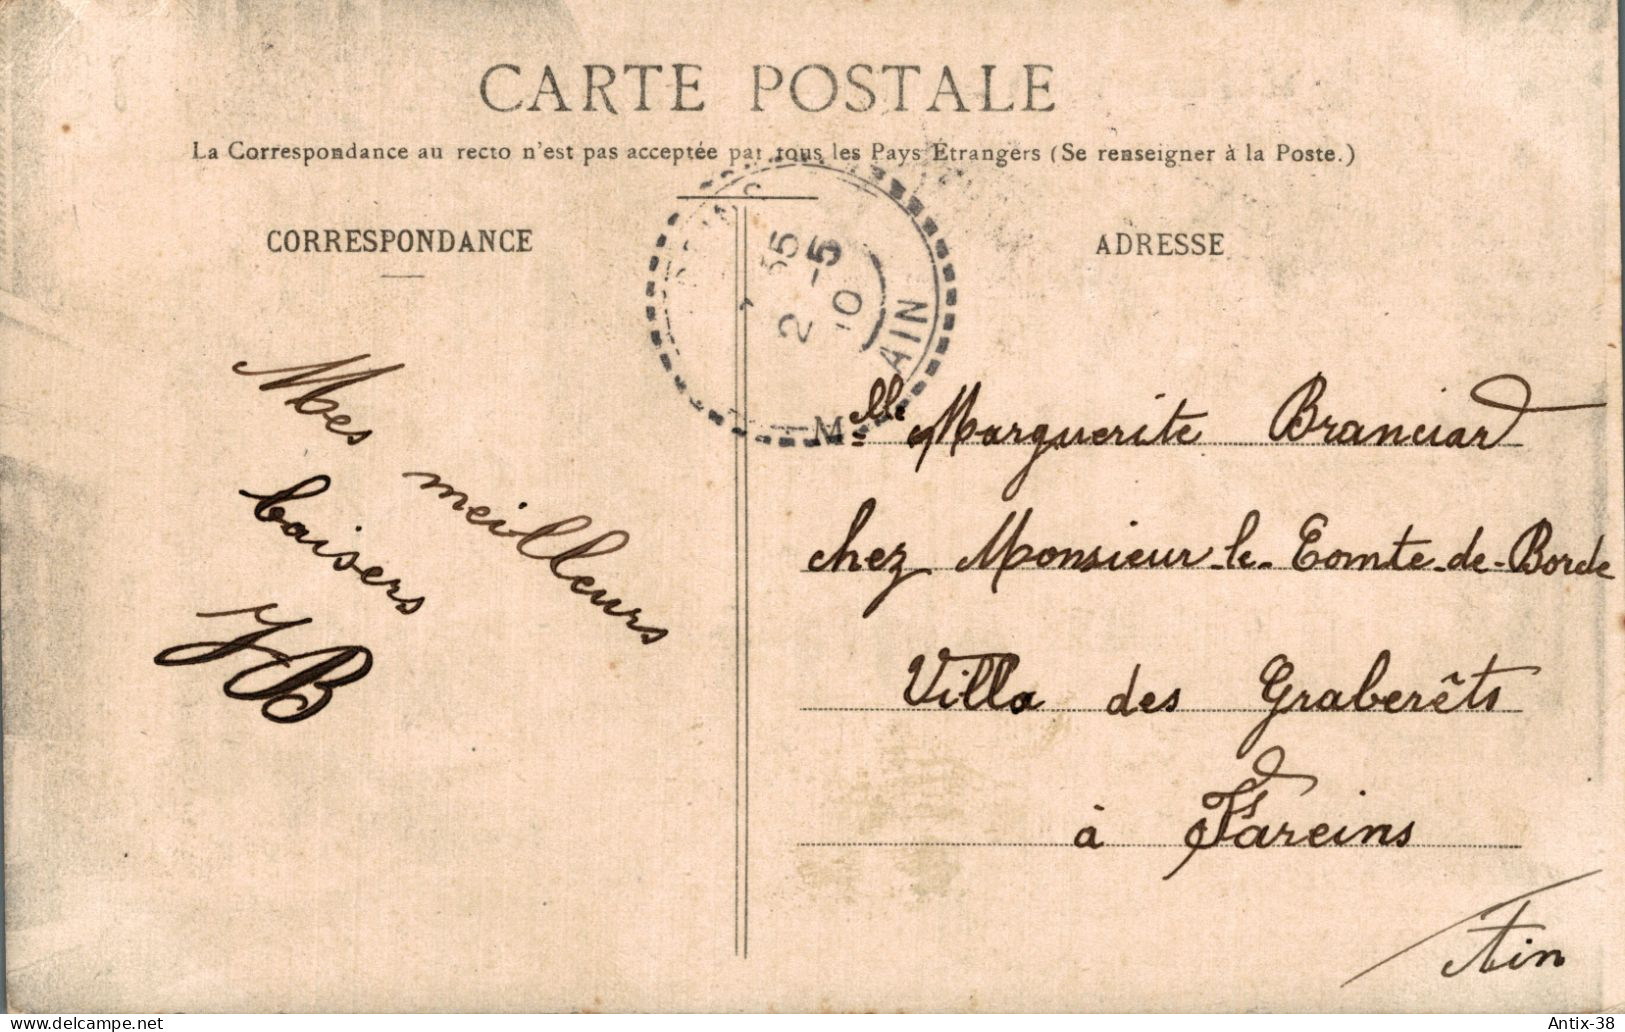 CARTE POSTALE
La Correspondance au recto n'est pas acceptée par tous les Pays Étrangers (Se renseigner à la Poste.)
CORRESPONDANCE
ADRESSE
55
2 -5
10
AIN
Mes meilleurs
baisers
JB
Mlle Marguerite Branciard
chez Monsieur le Comte de Borde
Villa des Graberêts
à Fareins
Ain
delcampe.net
Antix-38